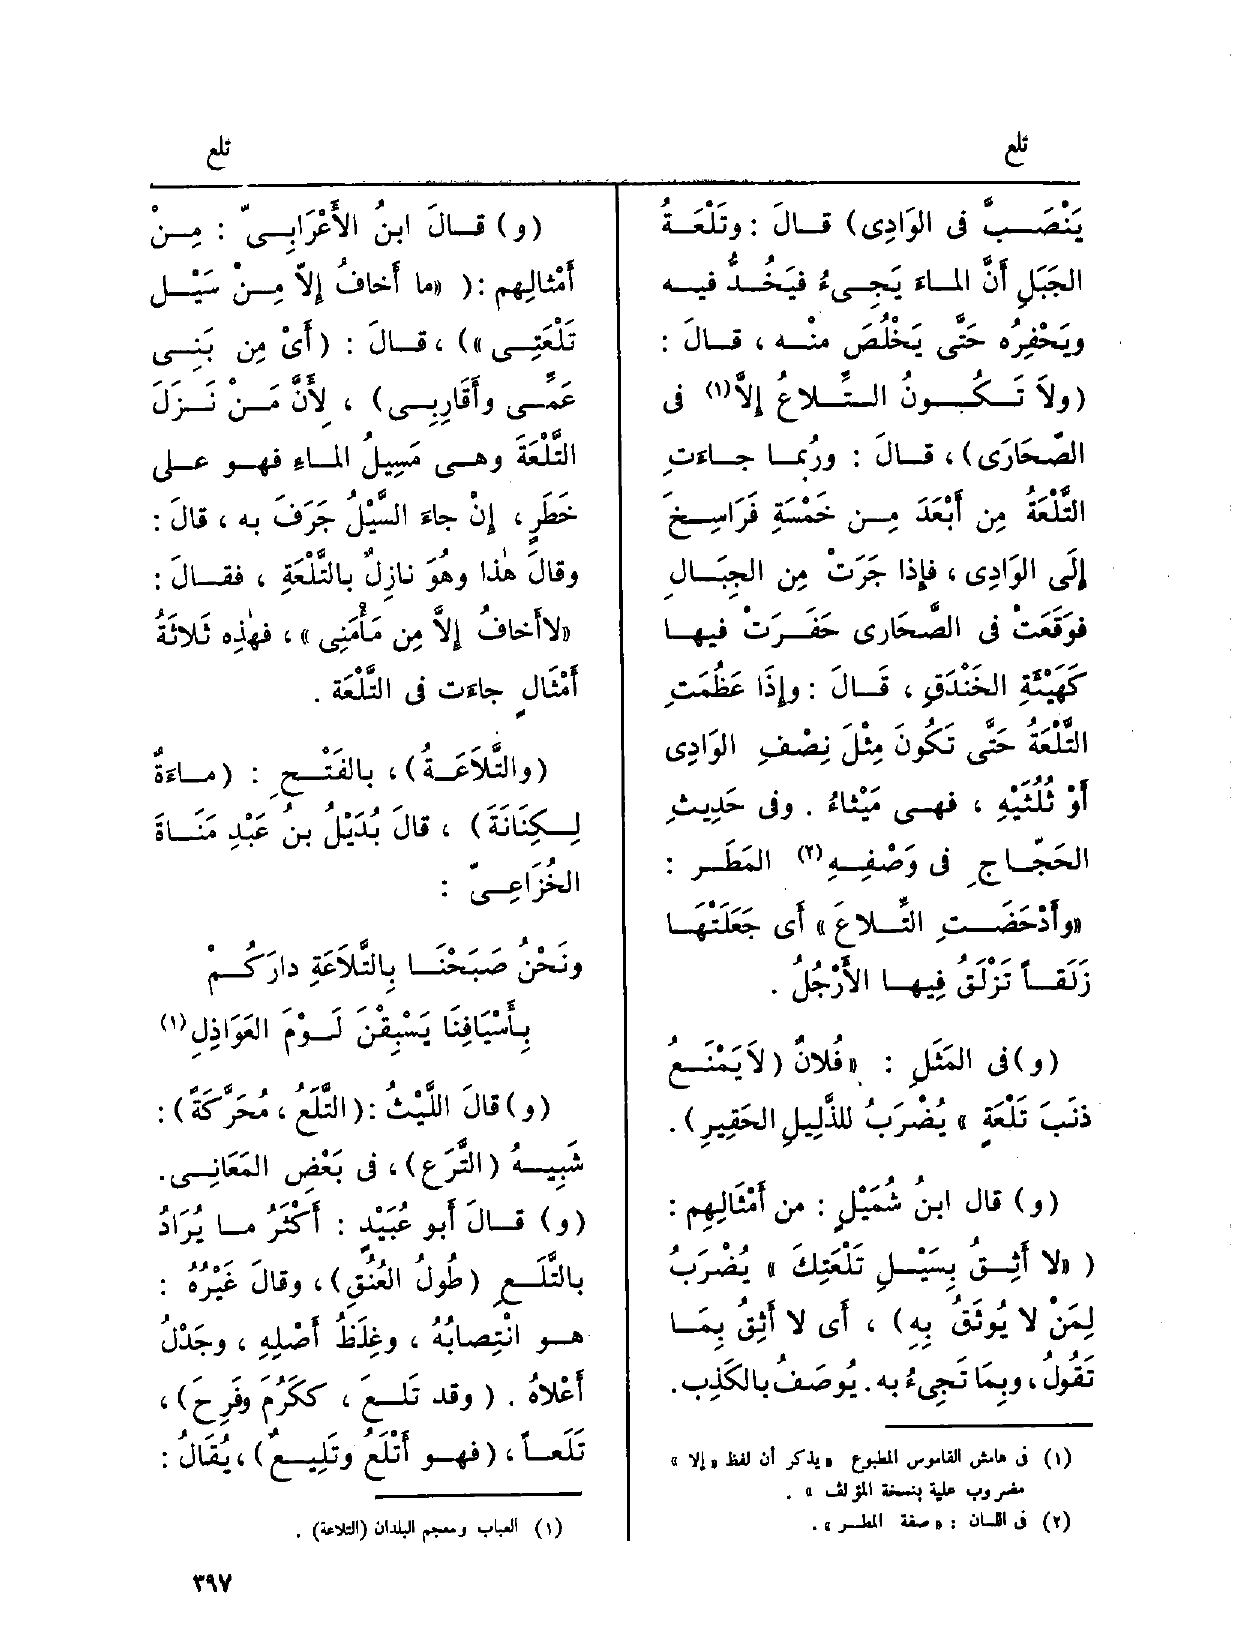 تلع
تلع
يَنْصَبُّ فى الوَادِى) قالَ : وتَلْعَةُ
الجَبَلِ أَنَّ الماءَ يَجِىءُ فيَخُدُّ فيه
ويَحْفِرُه حَتَّى يَخْلُصَ منْه ، قالَ :
(ولاَ تَكُونُ التِّلاعُ إِلاَّ(١) فى
الصَّحَارَى) ، قالَ : ورُبَّما جاءَتِ
التَّلْعَةُ مِن أَبْعَدَ مِن خَمْسَةِ فَرَاسِخَ
إِلَى الوَادِى ، فإِذا جَرَتْ مِن الجِبَالِ
فوَقَعَتْ فى الصَّحَارى حَفَرَتْ فيها
كَهَيْئَةِ الخَنْدَقِ ، قَالَ : وإِذَا عَظُمَتِ
التَّلْعَةُ حَتَّى تَكُونَ مِثْلَ نِصْفِ الوَادِى
أَوْ ثُلُثَيْهِ ، فهى مَيْثاءُ . وفى حَدِيثِ
الحَجّاجِ فى وَصْفِهِ(٢) المَطَر :
«وأَدْحَضَتِ التِّلاعَ» أَى جَعَلَتْهَا
زَلَقاً تَزْلَقُ فِيها الأَرْجُلُ .
(و) فى المَثَلِ : «فُلانٌ (لاَيَمْنَعُ
ذَنَبَ تَلْعَةٍ» يُضْرَبُ للذَّلِيلِ الحَقِيرِ) .
(و) قال ابنُ شُمَيْلٍ : من أَمْثَالِهِم :
( «لا أَثِقُ بِسَيْلِ تَلْعَتِكَ» يُضْرَبُ
لِمَنْ لا يُوثَقُ بِهِ) ، أَى لا أَثِقُ بِمَا
تَقُولُ ، وبِمَا تَجِىءُ به . يُوصَفُ بالكَذِبِ .
(١) فى هامش القاموس المطبوع «يذكر أن لفظ «إلا»
مضروب علية بنسخة المؤلف» .
(٢) فى اللسان : «صفة المطر» .
(و) قالَ ابنُ الأَعْرَابِىّ : مِنْ
أَمْثالِهِم : ( «ما أَخافُ إِلاّ مِنْ سَيْلِ
تَلْعَتِى» ) ، قالَ : (أَىْ مِن بَنِى
عَمِّى وأَقَارِبِى) ، لِأَنَّ مَنْ نَزَلَ
التَّلْعَةَ وهى مَسِيلُ الماء فهو على
خَطَرٍ ، إِنْ جاءَ السَّيْلُ جَرَفَ به ، قالَ :
وقالَ هٰذا وهُوَ نازِلٌ بالتَّلْعَةِ ، فقالَ :
«لاأَخافُ إِلاَّ مِن مَأْمَنِى» ، فهٰذِه ثَلاثَةُ
أَمْثَالٍ جاءَت فى التَّلْعَة .
(والتَّلاَعَةُ) ، بالفَتْحِ : (ماءَةٌ
لِكِنَانَةَ) ، قالَ بُدَيْلُ بنُ عَبْدِ مَنَاةَ
الخُزَاعِىّ :
ونَحْنُ صَبَحْنَا بِالتَّلاَعَةِ دارَكُمْ
بِأَسْيَافِنَا يَسْبِقْنَ لَوْمَ العَوَاذِلِ(١)
(و) قالَ اللَّيْثُ : (التَّلَعُ ، مُحَرَّكَةً) :
شَبِيهُ (التَّرَعِ) ، فى بَعْضِ المَعَانِى .
(و) قالَ أَبو عُبَيْد : أَكْثَرُ ما يُرَادُ
بالتَّلَعِ (طُولُ العُنُقِ) ، وقالَ غَيْرُهُ :
هو انْتِصابُهُ ، وغِلَظُ أَصْلِهِ ، وجَدْلُ
أَعْلاهُ . (وقد تَلِعَ ، ككَرُمَ وفَرِحَ) ،
تَلَعاً ، (فهو أَتْلَعُ وتَلِيعٌ) ، يُقَالُ :
(١) العباب ومعجم البلدان (التلاعة) .
٣٩٧